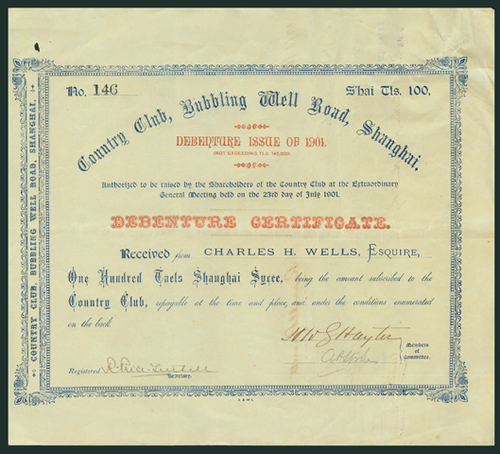 No. 146
S'hai Tls. 100.
Country Club, Bubbling Well Road, Shanghai.
DEBENTURE ISSUE OF 1901.
Authorized to be raised by the Shareholders of the Country Club at the Extraordinary
General Meeting held on the 23rd day of July 1901.
DEBENTURE CERTIFICATE.
Received from CHARLES H. WELLS, ESQUIRE,
One Hundred Taels Shanghai Sycee, being the amount subscribed to the
Country Club, repayable at the time and place, and under the conditions enumerated
on the back.
Members
of
Committee.
Registered
Secretary.
COUNTRY CLUB, BUBBLING WELL ROAD, SHANGHAI.